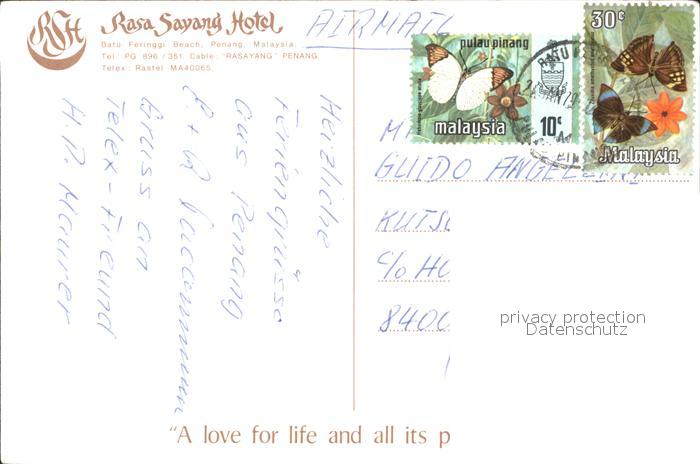 RSH
Rasa Sayang Hotel
Batu Feringgi Beach, Penang, Malaysia.
Tel: PG 896 / 351. Cable: "RASAYANG" PENANG.
Telex: Rastel MA40065.
AIRMAIL
pulau pinang
malaysia
10c
30c
Malaysia
Herzliche
Feriengrüsse
aus Penang
Gruss an
Telex-Freund
H.P. Maurer
GUIDO ANGELE
KUTS
C/o HO
8400
privacy protection
Datenschutz
"A love for life and all its p